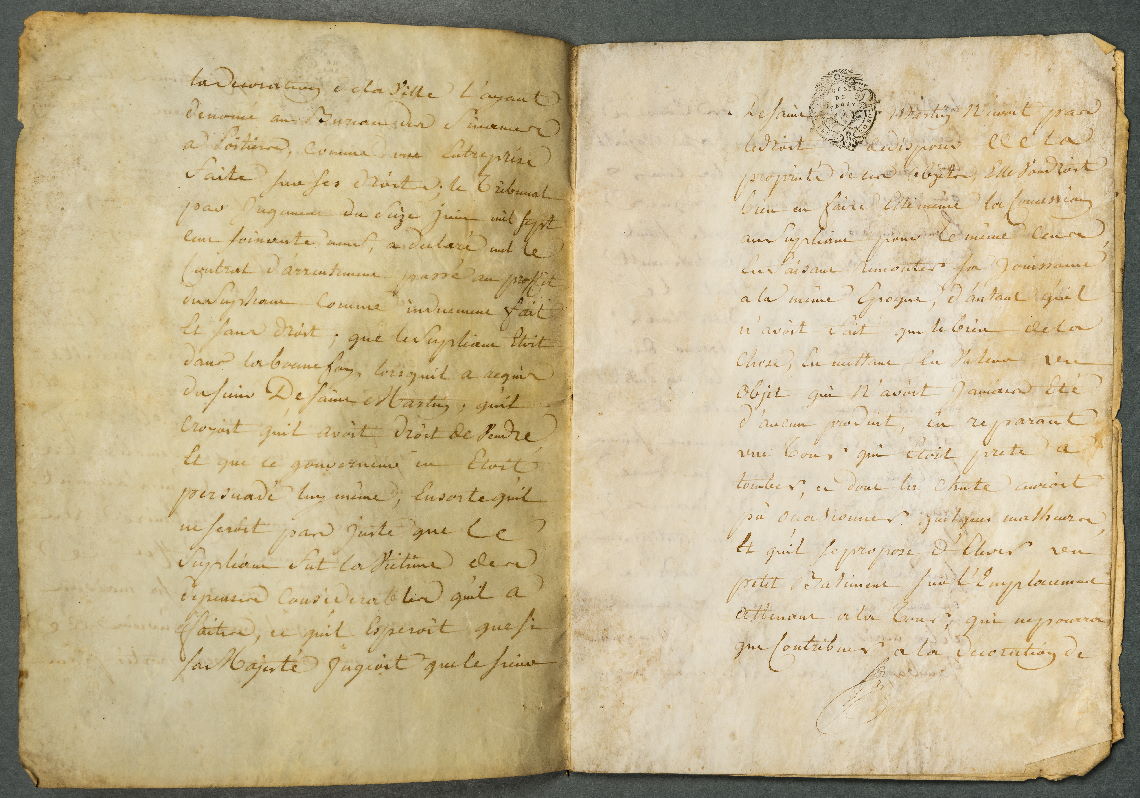 la Decoration de la Ville L'ayant
denoncé au Bureau des finances
a Poitiers, comme une Entreprise
faite sur ses droits, le Tribunal
par Jugement du seize juin mil sept
cent soixante neuf, a declaré nul le
Contrat d'arrentement passé au proffit
du Supliant comme indument fait
Et sans droit; que le Supliant Etoit
dans la bonne foy, lorsquil a acquis
du sieur De Saint Martin, quil
croyoit quil avoit droit de Vendre
Et que le gouverneur en Etoit
persuadé luy même, Ensorte qu'il
ne seroit pas juste que le
Supliant fut la Victime de ces
depenses Considerables qu'il a
faittes, et quil Esperoit que si
sa Majesté Jugeoit que le sieur
De Saint Martin N'avoit pas
le droit de disposer de la
propriété de ces objets, Elle Voudroit
bien en faire Elle même la Concession
au Supliant pour le même Cens
En faisant remonter sa Jouissance
a la même Epoque, d'autant qu'il
n'avoit fait que le bien de la
Chose, En mettant En Valeur un
Objet qui N'avoit Jamais Eté
d'aucun produit, En reparant
une Tour qui étoit prete a
tomber, et dont la Chute auroit
pû occasionner quelques malheurs,
Et qu'il se propose d'Elever un
petit Batiment sur l'Emplacement
attenant a la Tour, qui ne pourra
que Contribuer a la decoration de